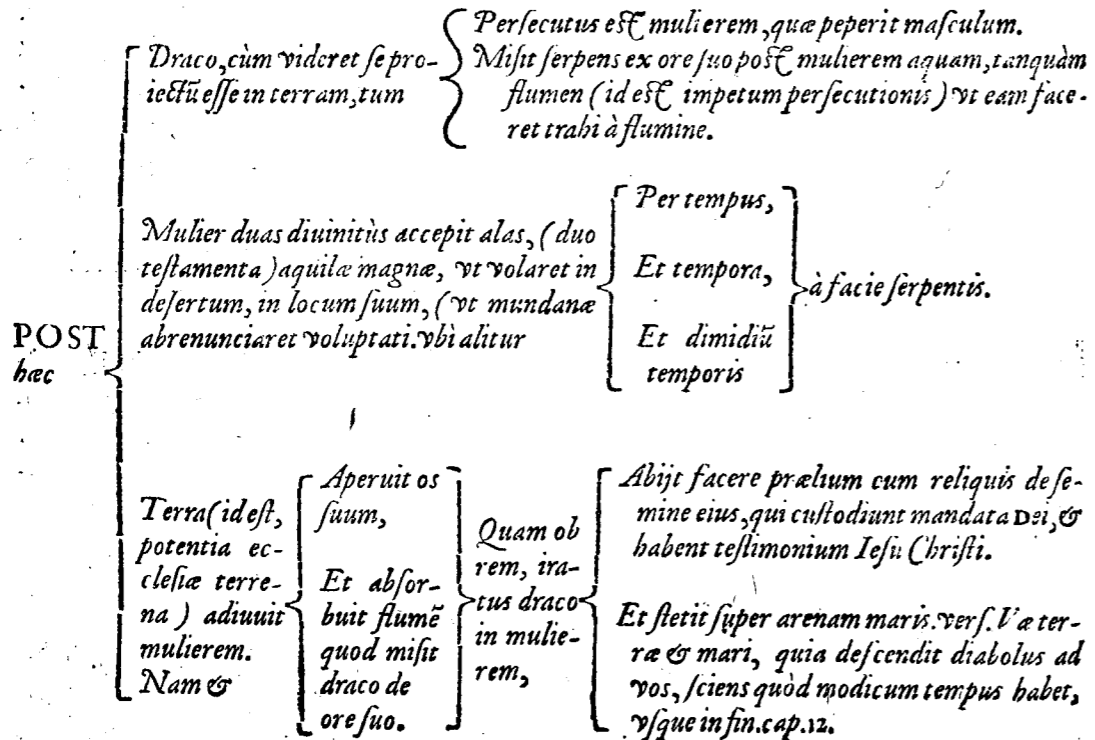 POST
hæc
Draco, cùm videret se pro-
iectũ esse in terram, tum
Persecutus est mulierem, quæ peperit masculum.
Misit serpens ex ore suo post mulierem aquam, tanquàm
flumen (id est impetum persecutionis) vt eam face-
ret trahi à flumine.
Mulier duas diuinitùs accepit alas, (duo
testamenta) aquilæ magnæ, vt volaret in
desertum, in locum suum, (vt mundanæ
abrenunciaret voluptati. vbi alitur
Per tempus,
Et tempora,
Et dimidiũ
temporis
à facie serpentis.
Terra (id est,
potentia ec-
clesiæ terre-
na ) adiuuit
mulierem.
Nam &
Aperuit os
suum,
Et absor-
buit flumẽ
quod misit
draco de
ore suo.
Quam ob
rem, ira-
tus draco
in mulie-
rem,
Abijt facere prælium cum reliquis de se-
mine eius, qui custodiunt mandata Dei, &
habent testimonium Iesu Christi.
Et stetit super arenam maris. vers. Væ ter-
ræ & mari, quia descendit diabolus ad
vos, sciens quòd modicum tempus habet,
vsque in fin. cap. 12.